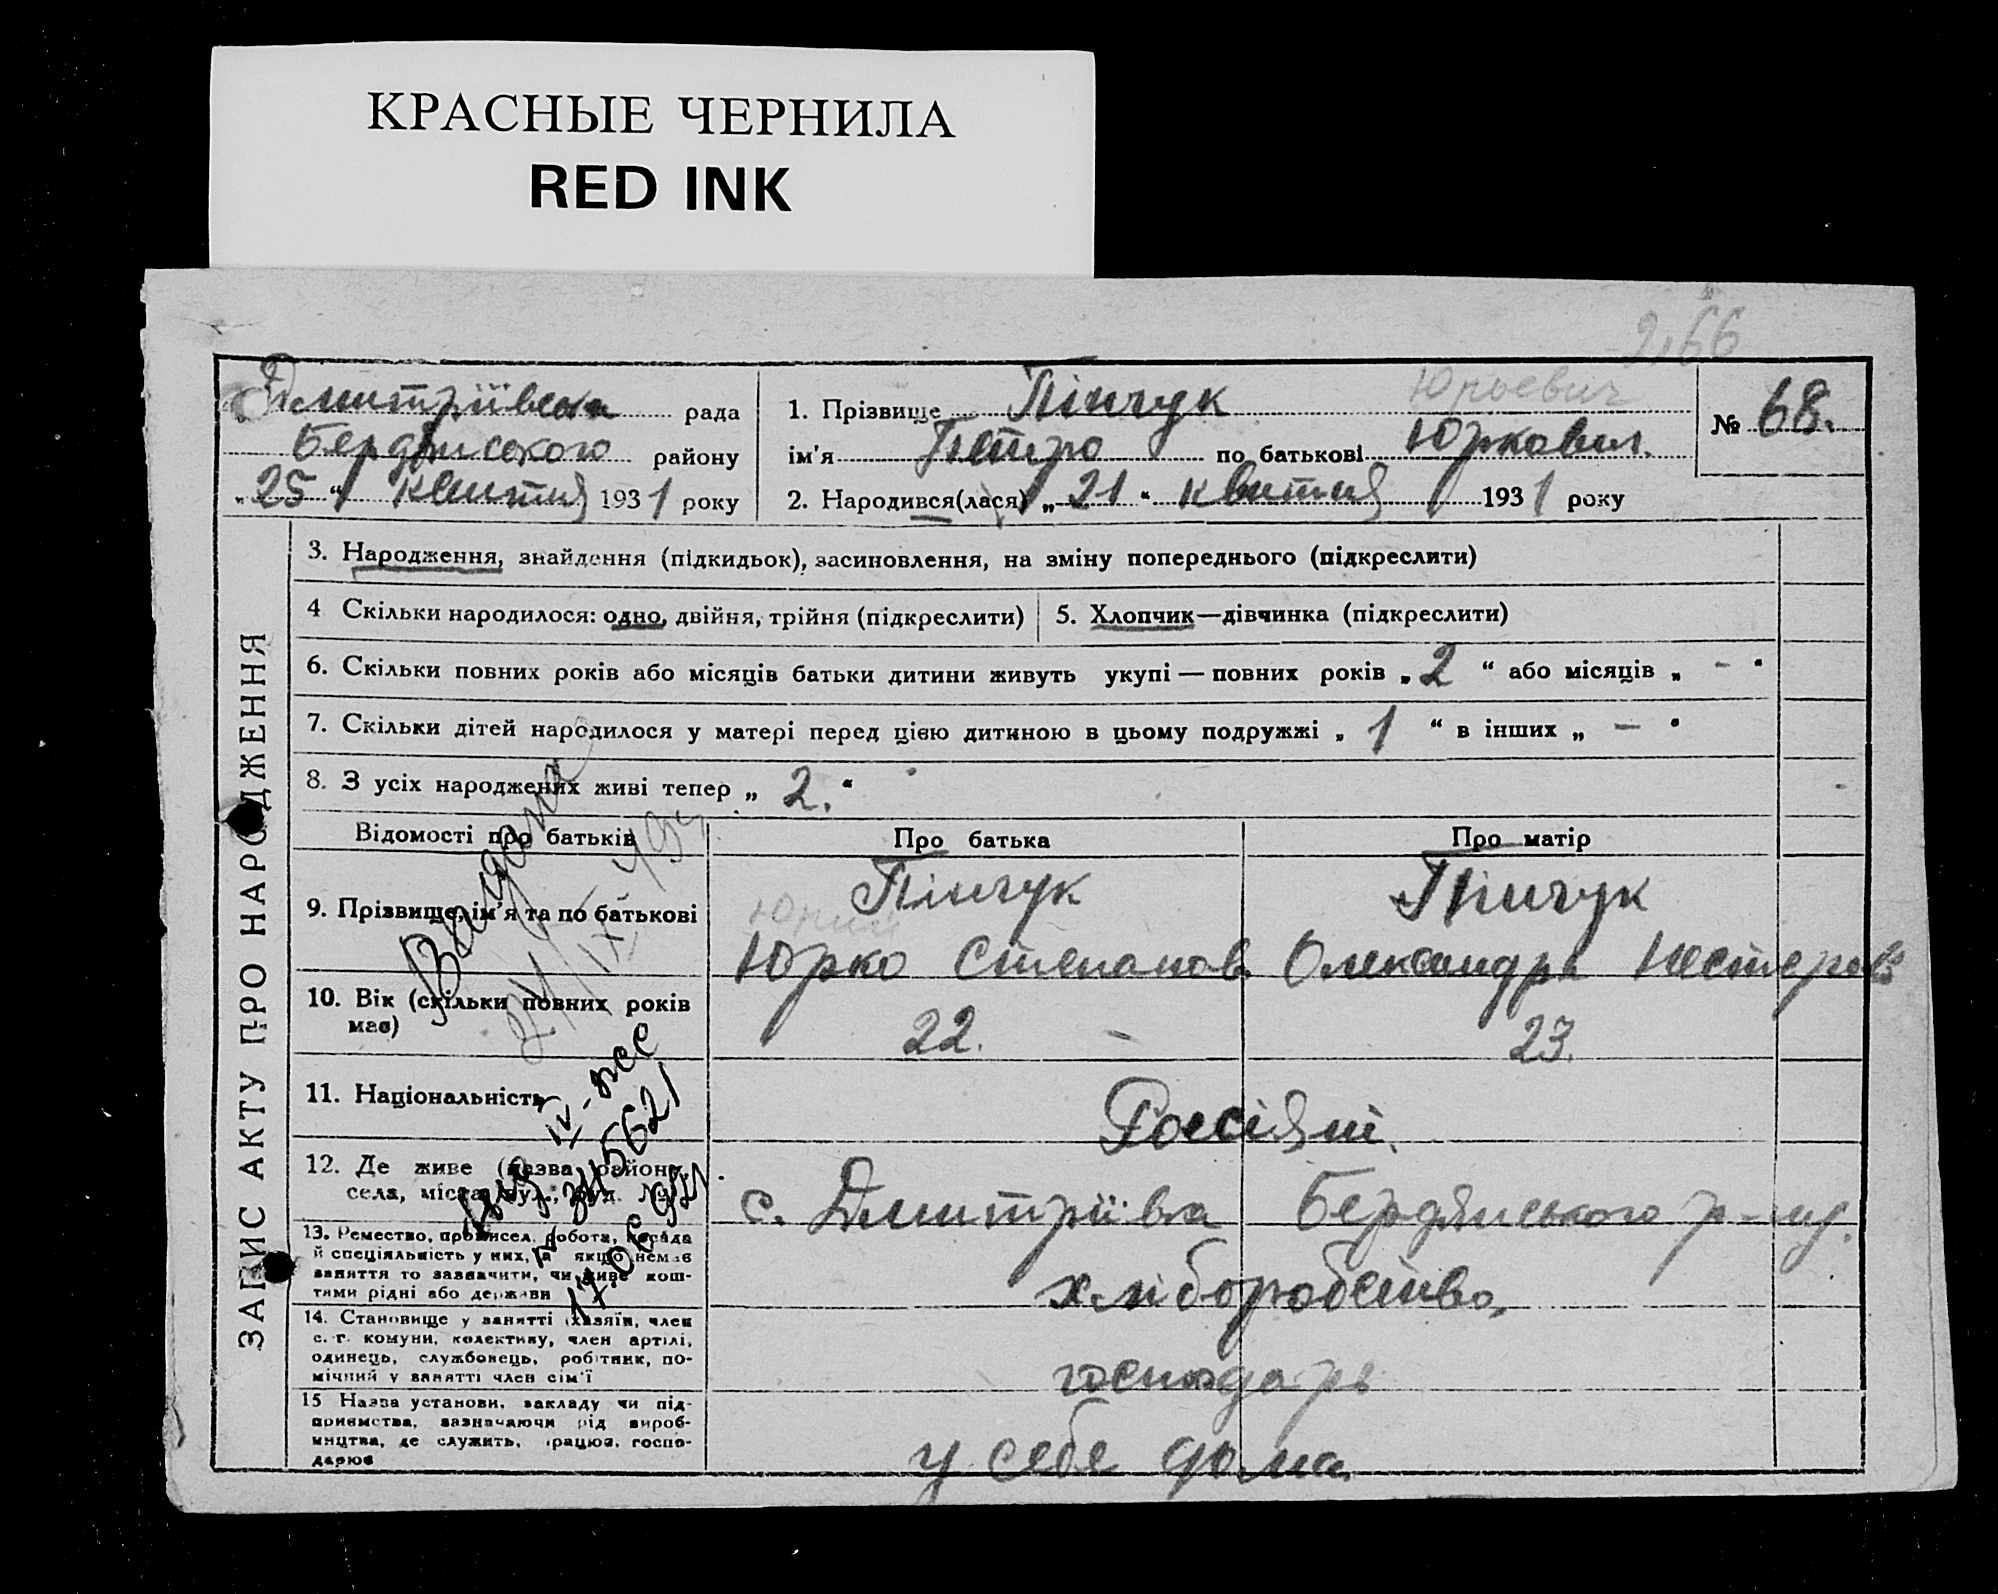 КРАСНЫЕ ЧЕРНИЛА
RED INK
266
Дмитріївська рада
Бердянського району
„25“ квітня 1931 року
1. Прізвище Пінчук
Юрьевич
ім'я Петро по батькові Юркович.
2. Народився(лася) „21“ квітня 1931 року
№ 68.
ЗАПИС АКТУ ПРО НАРОДЖЕННЯ
3. Народження, знайдення (підкидьок), засиновлення, на зміну попереднього (підкреслити)
4 Скільки народилося: одно, двійня, трійня (підкреслити)
5. Хлопчик—дівчинка (підкреслити)
6. Скільки повних років або місяців батьки дитини живуть укупі — повних років „2“ або місяців „-“
7. Скільки дітей народилося у матері перед цією дитиною в цьому подружжі „1“ в інших „-“
8. З усіх народжених живі тепер „2.“
Відомості про батьків
Про батька
Про матір
9. Прізвище, ім'я та по батькові
Пінчук
Юрий
Юрко Степанов.
Пінчук
Олександра Нестеров
10. Вік (скільки повних років має)
22. -
23.
11. Національність
Росіяні.
12. Де живе (назва району, села, міста, вул., буд. №)
с. Дмитріївка Бердянського р-ну.
13. Ремество, промисел, робота, посада
й спеціяльність у них, а якщо немає
заняття то зазначити, чи живе кош-
тами рідні або держави
хліборобство,
14. Становище у занятті (хазяїн, член
с.-г. комуни, колективу, член артілі,
одинець, службовець, робітник, по-
мічний у занятті член сім'ї
господарь
15 Назва установи, закладу чи під-
приємства, зазначаючи рід вироб-
ництва, де служить, працює, госпо-
дарює
у себе дома.
Выдано
IV-
345621
17.06.